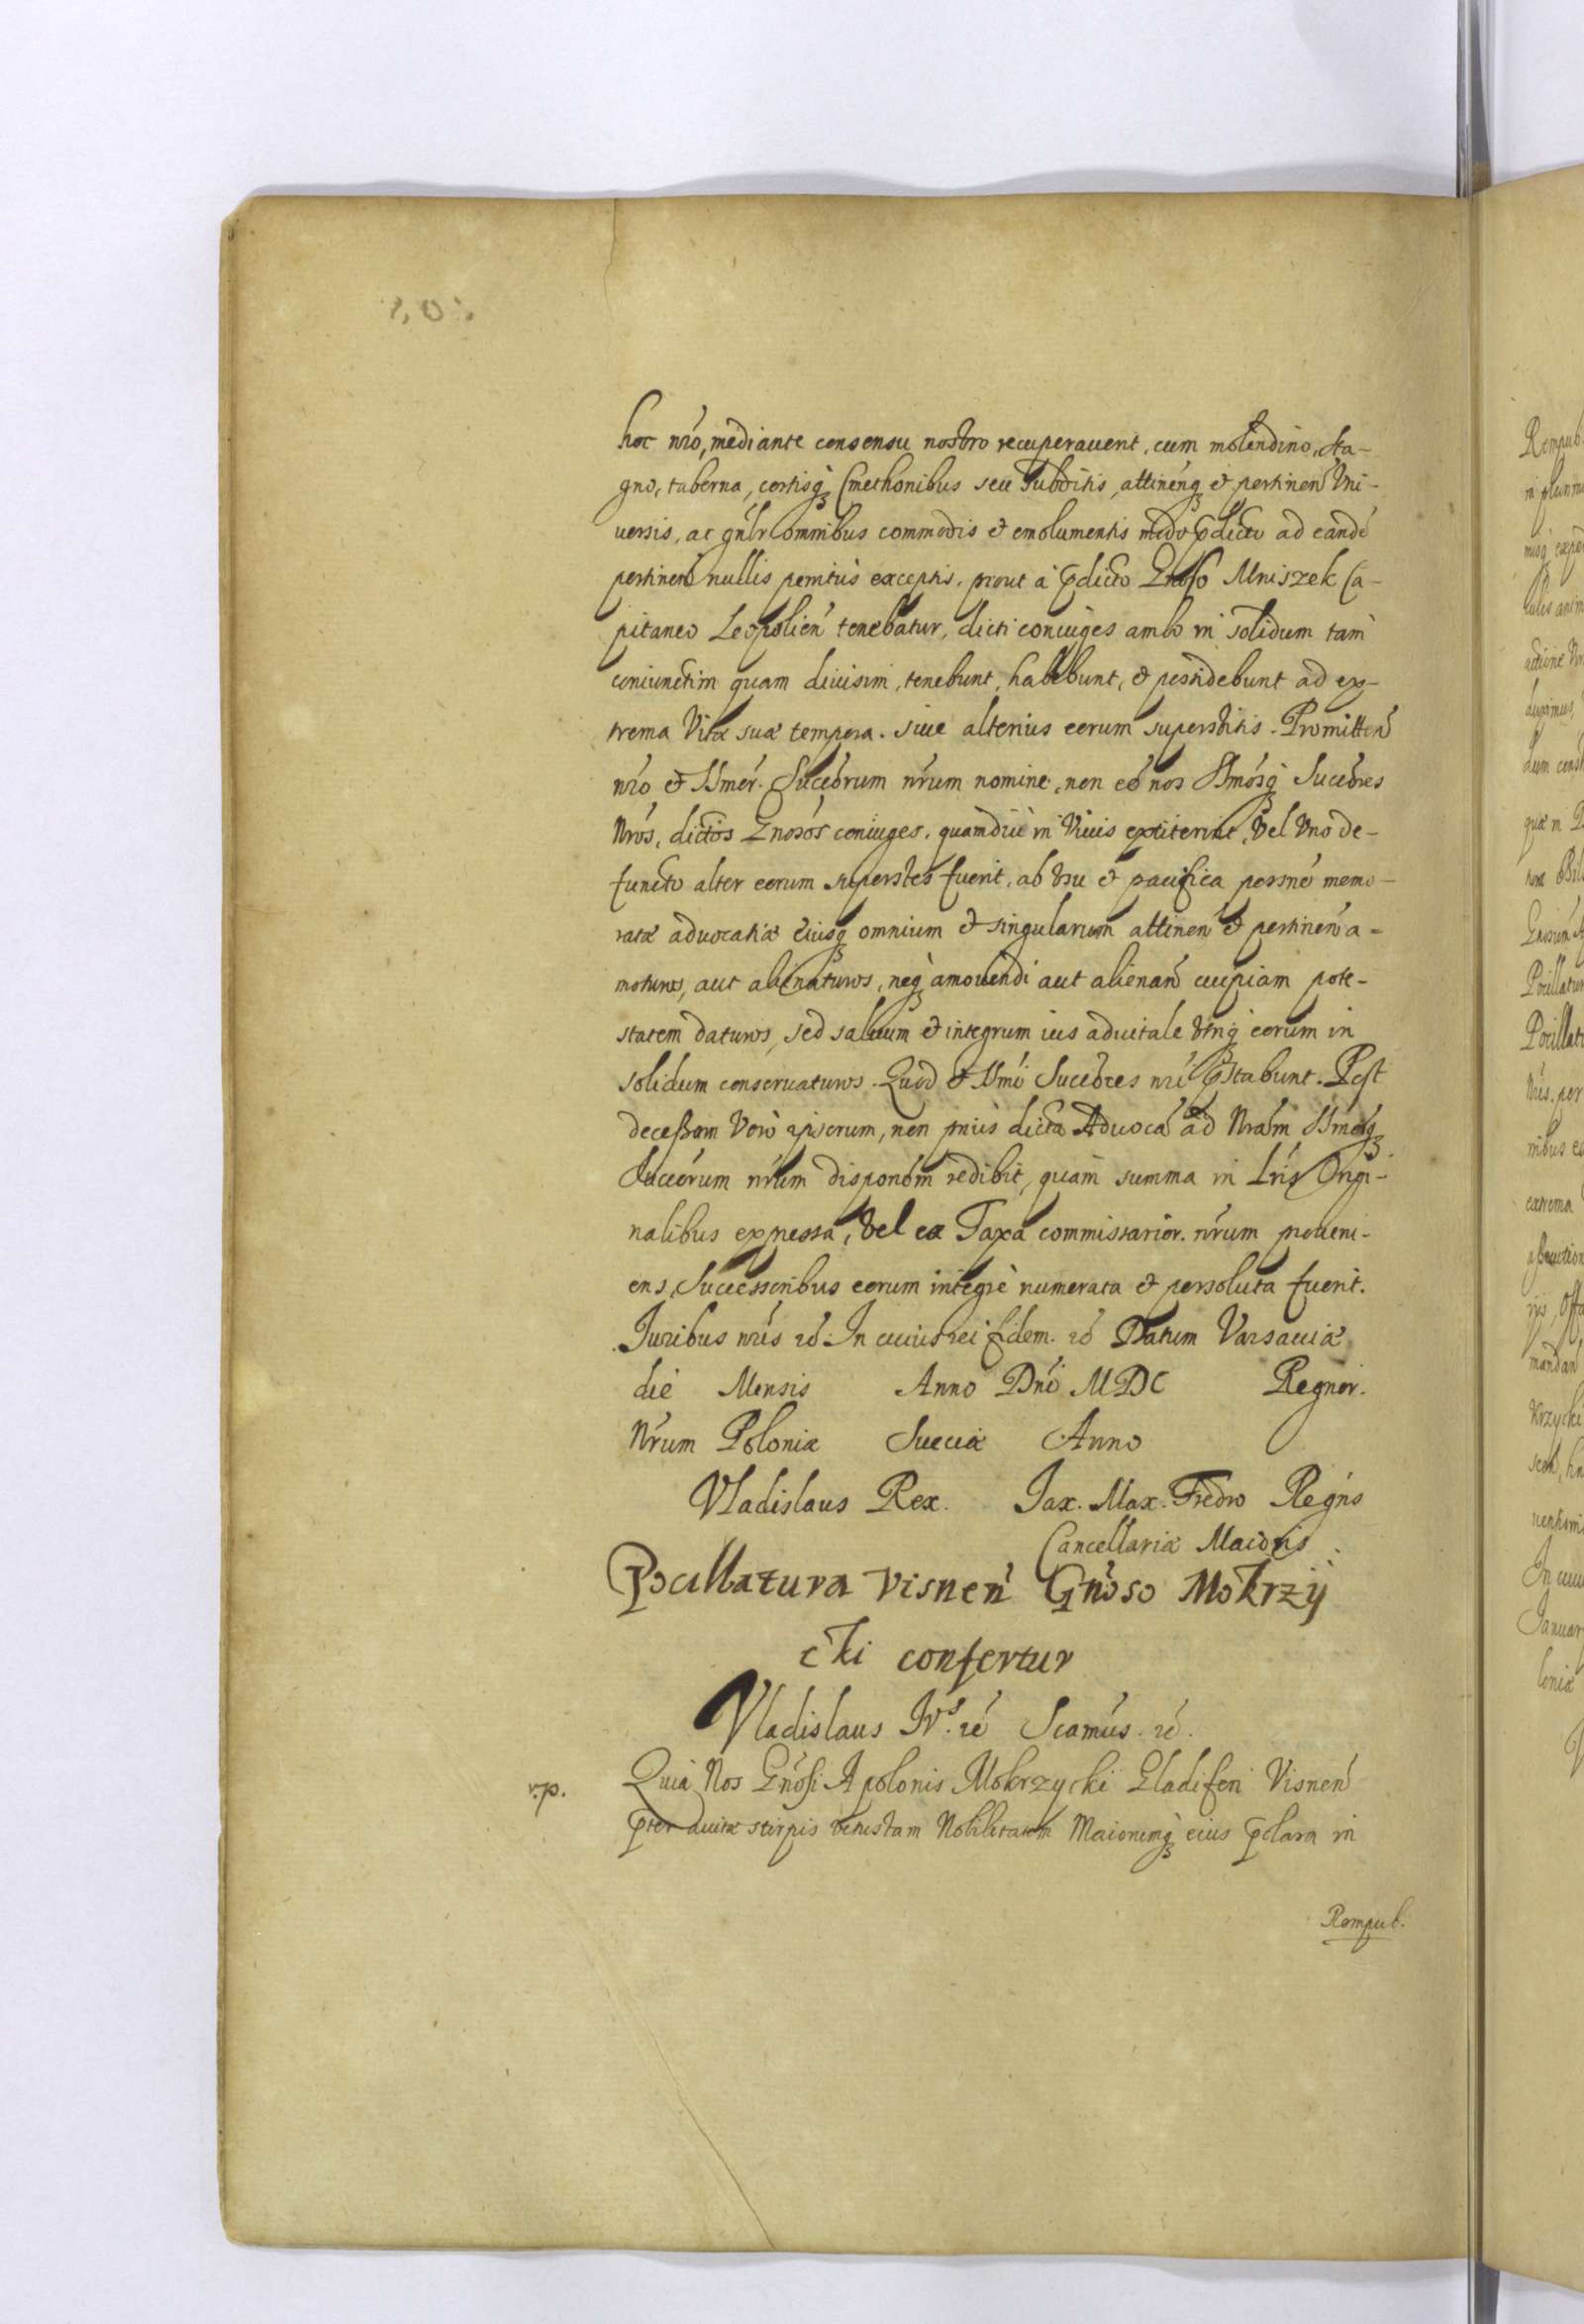 hoc nŕo, mediante consensu nostro recuperauerit, cum molendino, sta-
gno, taberna, certisq́ Cmethonibus seu subditis, attinenq́ et pertineń Vni-
uersis, ac gńlr omnibus commodis et emolumentis modo p̄dicto ad eandé
pertineń nullis penitus exceptis. prout à p̄dicto Gnoso Mniszek Ca-
pitaneo Leopolień tenebatur, dicti coniuges ambo in solidum tam
coniunctim quam diuisim, tenebunt, habebunt, et possidebunt ad ex-
trema Vitæ suæ tempora. siue alterius eorum superstitis. Promitteń
nŕo et SSmoŕ. Succórum nŕum nomine, non eé nos SSmósq́ Succóres
Nŕos, dictos Gnosós coniuges, quamdiu in Viuis extiterint, Vel Vno de-
functo alter eorum superstes fuerit, ab Vsu et pacifica possné memo-
ratæ aduocatiæ eiusq́ omnium et singularum attineń et pertineń a-
moturos, aut alienaturos, neq́ amouendi aut alienań cuipiam pote-
statem daturos, sed saluum et integrum ius aduitale Vtriq́ eorum in
solidum conseruaturos. Quod et SSmi Succóres nŕi p̄stabunt. Post
decessum Verò ipsorum, non priùs dicta Aduocá ad Nŕam SSmoŕq́
Succórum nŕum disponém redibit, quam summa in Lŕis Origi-
nalibus expressa, Vel ex Taxa commissarior. nŕum proueni-
ens, Successoribus eorum integrè numerata et persoluta fuerit.
Juribus nŕis ré. In cuius rei fidem. ré Datum Varsauiæ
die Mensis Anno Dńi MDC Regnor.
Nŕum Poloniæ Sueciæ Anno
Vladislaus Rex. Jax. Max. Fredro Regńs
Cancellariæ Maioris.
Pocillatura Visneń Gńoso Mokrzy
cki confertur
Vladislaus IVs. ré Scamús. ré.
r.p. Quia Nos Gńosi Apolonis Mokrzycki Gladiferi Visneń
p̄ter auitæ stirpis vetustam Nobilitatem Maiorumq́ eius p̄clara in
Rempub.